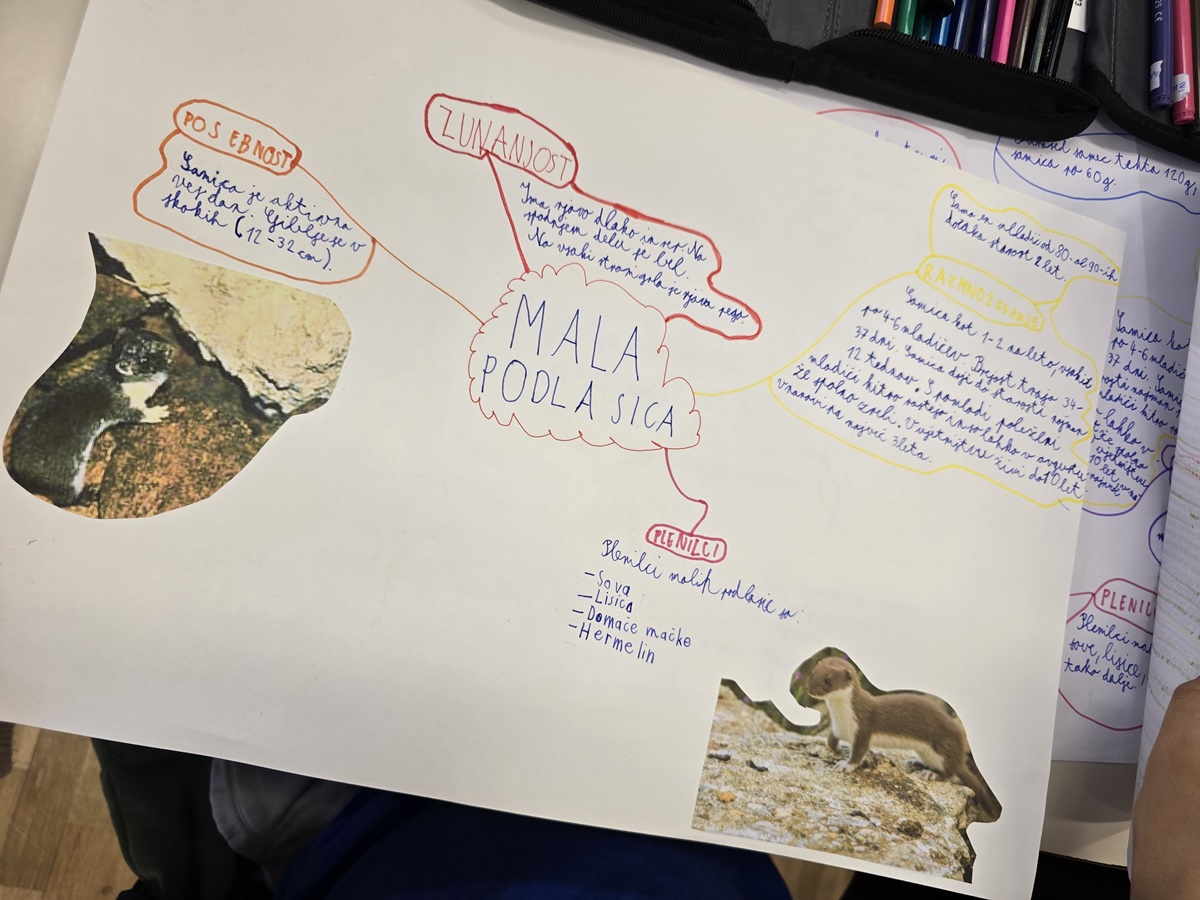 POSEBNOST
Samica je aktivna
ves dan. Giblje se v
skokih (12-32 cm).
ZUNANJOST
Ima rjavo dlako in rep. Na
spodnjem delu je bel.
Na vsaki strani grla je rjava pega.
MALA
PODLASICA
Samo en mladič od 80- al 90-ih
dočaka starost 2 let.
RAZMNOŽEVANJE
Samica kot 1-2 na leto, vsakič
po 4-6 mladičev. Brejost traja 34-
37 dni. Samica doji do starosti najman
12 tednov. Spomladi poleženi
mladiči hitro rastejo in so lahko v avgustu
že spolno zreli. V ujetništvu živi do 10 let
v naravi pa največ 3 leta.
PLENILCI
Plenilci malih podlasic so:
-Sova
-Lisica
-Domače mačke
-Hermelin
samec tehta 120g,
samica pa 60g.
Samica ko
po 4-6 mladič
37 dni. Sam
PLENILC
Plenilci mal
sove, lisice,
tako dalje.